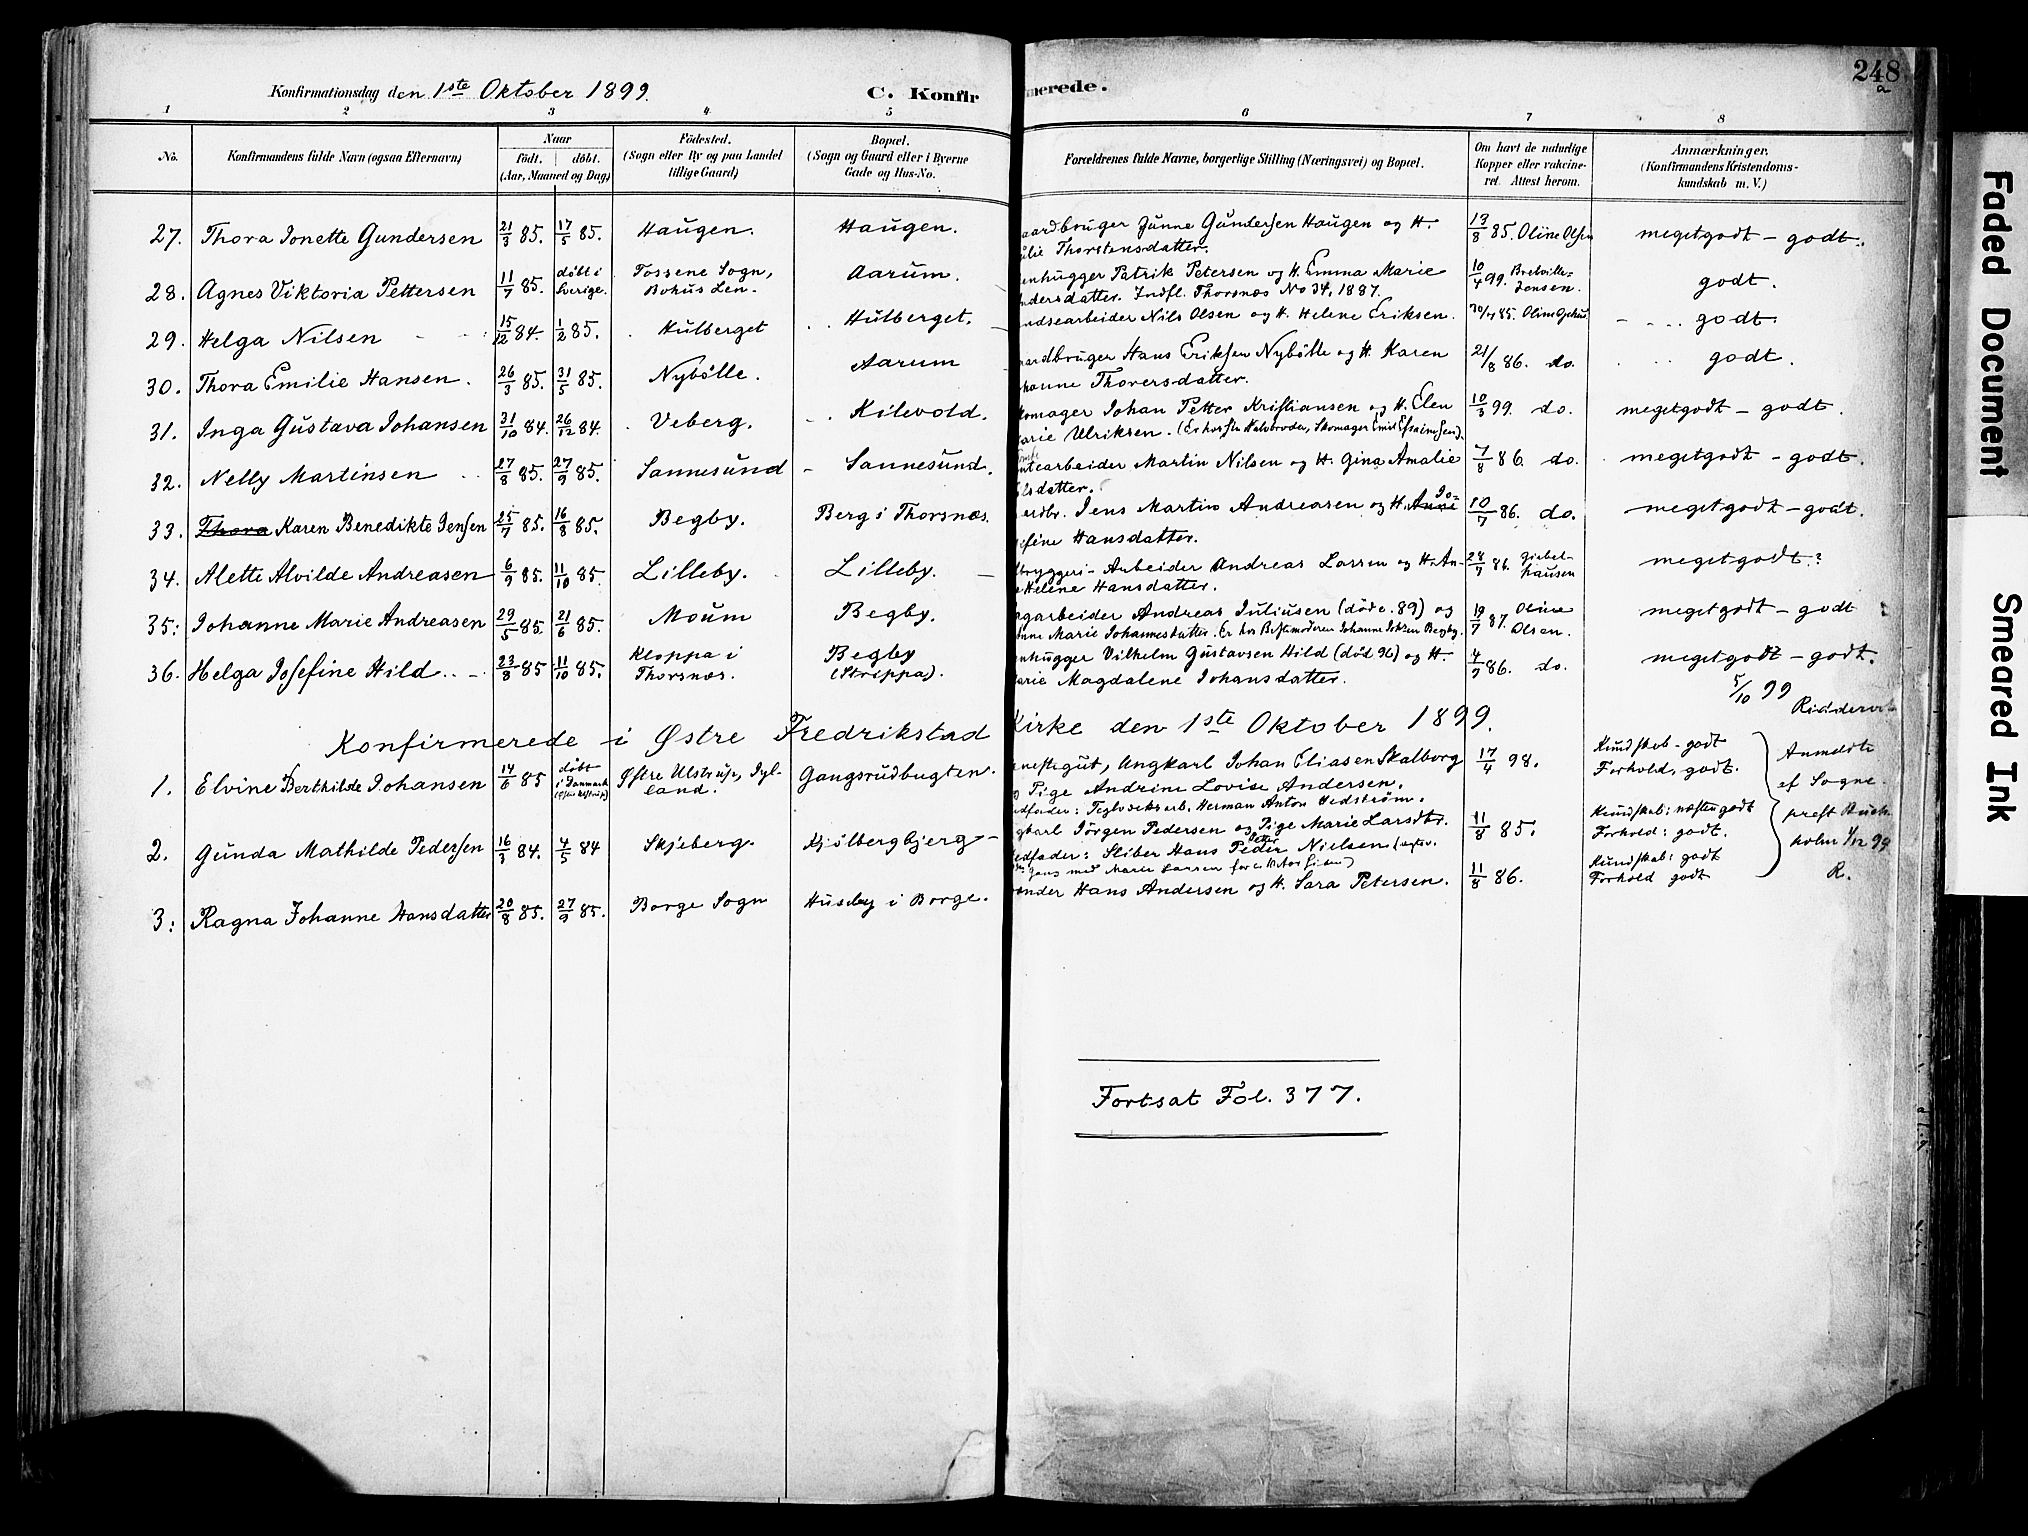 248
a
Konfirmationsdag den 1ste Oktober 1899.
C. Konfir
merede.
1 2 3 4 5 6 7 8
No. Konfirmandens fulde Navn (ogsaa Efternavn) Naar født. døbt. (Aar, Maaned og Dag) Fødested. (Sogn eller By og paa Landet tillige Gaard) Bopæl. (Sogn og Gaard eller i Byerne Gade og Hus-No. Forældrenes fulde Navne, borgerlige Stilling (Næringsvei) og Bopæl. Om havt de naturlige Kopper eller vakcineret. Attest herom. Anmærkninger. (Konfirmandens Kristendomskundskab m. V.)
27. Thora Jonette Gundersen 21/3 85. 17/5 85. Haugen. Haugen. aardbruger Gunne Gundersen Haugen og H. 13/8 85. Oline Olsen megetgodt - godt.
ulie Thorstensdatter.
28. Agnes Viktoria Pettersen 11/7 85. døbt i Sverige. Tossene Sogn, Bohus Len. Aarum. enhugger Patrik Petersen og H. Emma Marie 10/4 99. Jensen. godt.
ndersdatter. Indfl. Thorsnæs No 34, 1887.
29. Helga Nilsen 15/12 84. 1/2 85. Hulberget Hulberget. ndsearbeider Nils Olsen og H. Helene Eriksen. 85. godt.
30. Thora Emilie Hansen. 26/3 85. 31/5 85. Nybølle. Aarum aardbruger Hans Eriksen Nybølle og H. Karen 21/8 86. do. godt.
hanne Thoversdatter.
31. Inga Gustava Johansen 31/10 84. 26/12 84. Veberg. Kilevold. komager Johan Petter Kristiansen og H. Elen 10/3 99. do. megetgodt - godt.
arie Ulriksen. Skomager Emil Efraimsen).
32. Nelly Martinsen 27/8 85. 27/9 85. Sannesund Sannesund. tearbeider Martin Nilsen og H. Gina Amalie 7/8 86. do. megetgodt - godt.
lsdatter.
33. Thora Karen Benedikte Jensen 25/7 85. 16/8 85. Begby. Berg i Thorsnæs. rdbr. Jens Martin Andreasen og H. Anne Jo= 10/7 86. do. megetgodt - godt.
efine Hansdatter.
34. Alette Alvilde Andreasen 6/9 85. 11/10 85. Lilleby. Lilleby. bryggeri-Arbeider Andreas Larsen og H. An- 86. megetgodt.
Helene Hansdatter.
35. Johanne Marie Andreasen 29/5 85. 21/6 85. Moum Begby. garbeider Andreas Juliusen (død c. 89) og 19/7 87. Oline Olsen. megetgodt - godt
nne Marie Johannesdatter. Er hos Bestemoderen Johanne Begby.
36. Helga Josefine Hild 23/8 85 11/10 85. Kloppa i Thorsnæs. Begby (Strippa). enhugger Vilhelm Gustavsen Hild (død 96) og H. 4/9 86. do. megetgodt - godt.
arie Magdalene Johansdatter.
5/10 99
Konfirmerede i Østre Fredrikstad Kirke den 1ste Oktober 1899.
1. Elvine Berthilde Johansen 14/6 85 døbt i Danmark Østre Ulstrup, Jylland. Gangsrudbugten. nestegut, Ungkarl Johan Eliasen Skalborg 17/4 98. Kundskab - godt Forhold, godt. Anmeldte
Pige Andrine Lovise Andersen.
edfader: Teglværksarb. Herman Anton Hedstrøm.
af Sogne-
2. Gunda Mathilde Pedersen 16/3 84. 4/5 84 Skjeberg. Kjølbergbjerg gkarl Jørgen Pedersen og Pige Marie Larsdtr. 11/8 85. Kundskab: næsten godt Forhold: godt. prest
edfader: Sliber Hans Peder Nielsen
99
3. Ragna Johanne Hansdatter 20/8 85. 27/9 85. Borge Sogn Huseby i Borge. onder Hans Andersen og H. Sara Petersen. 11/8 86. Kundskab: godt Forhold godt R.
Fortsat Fol. 377.
Faded Document
Smeared Ink